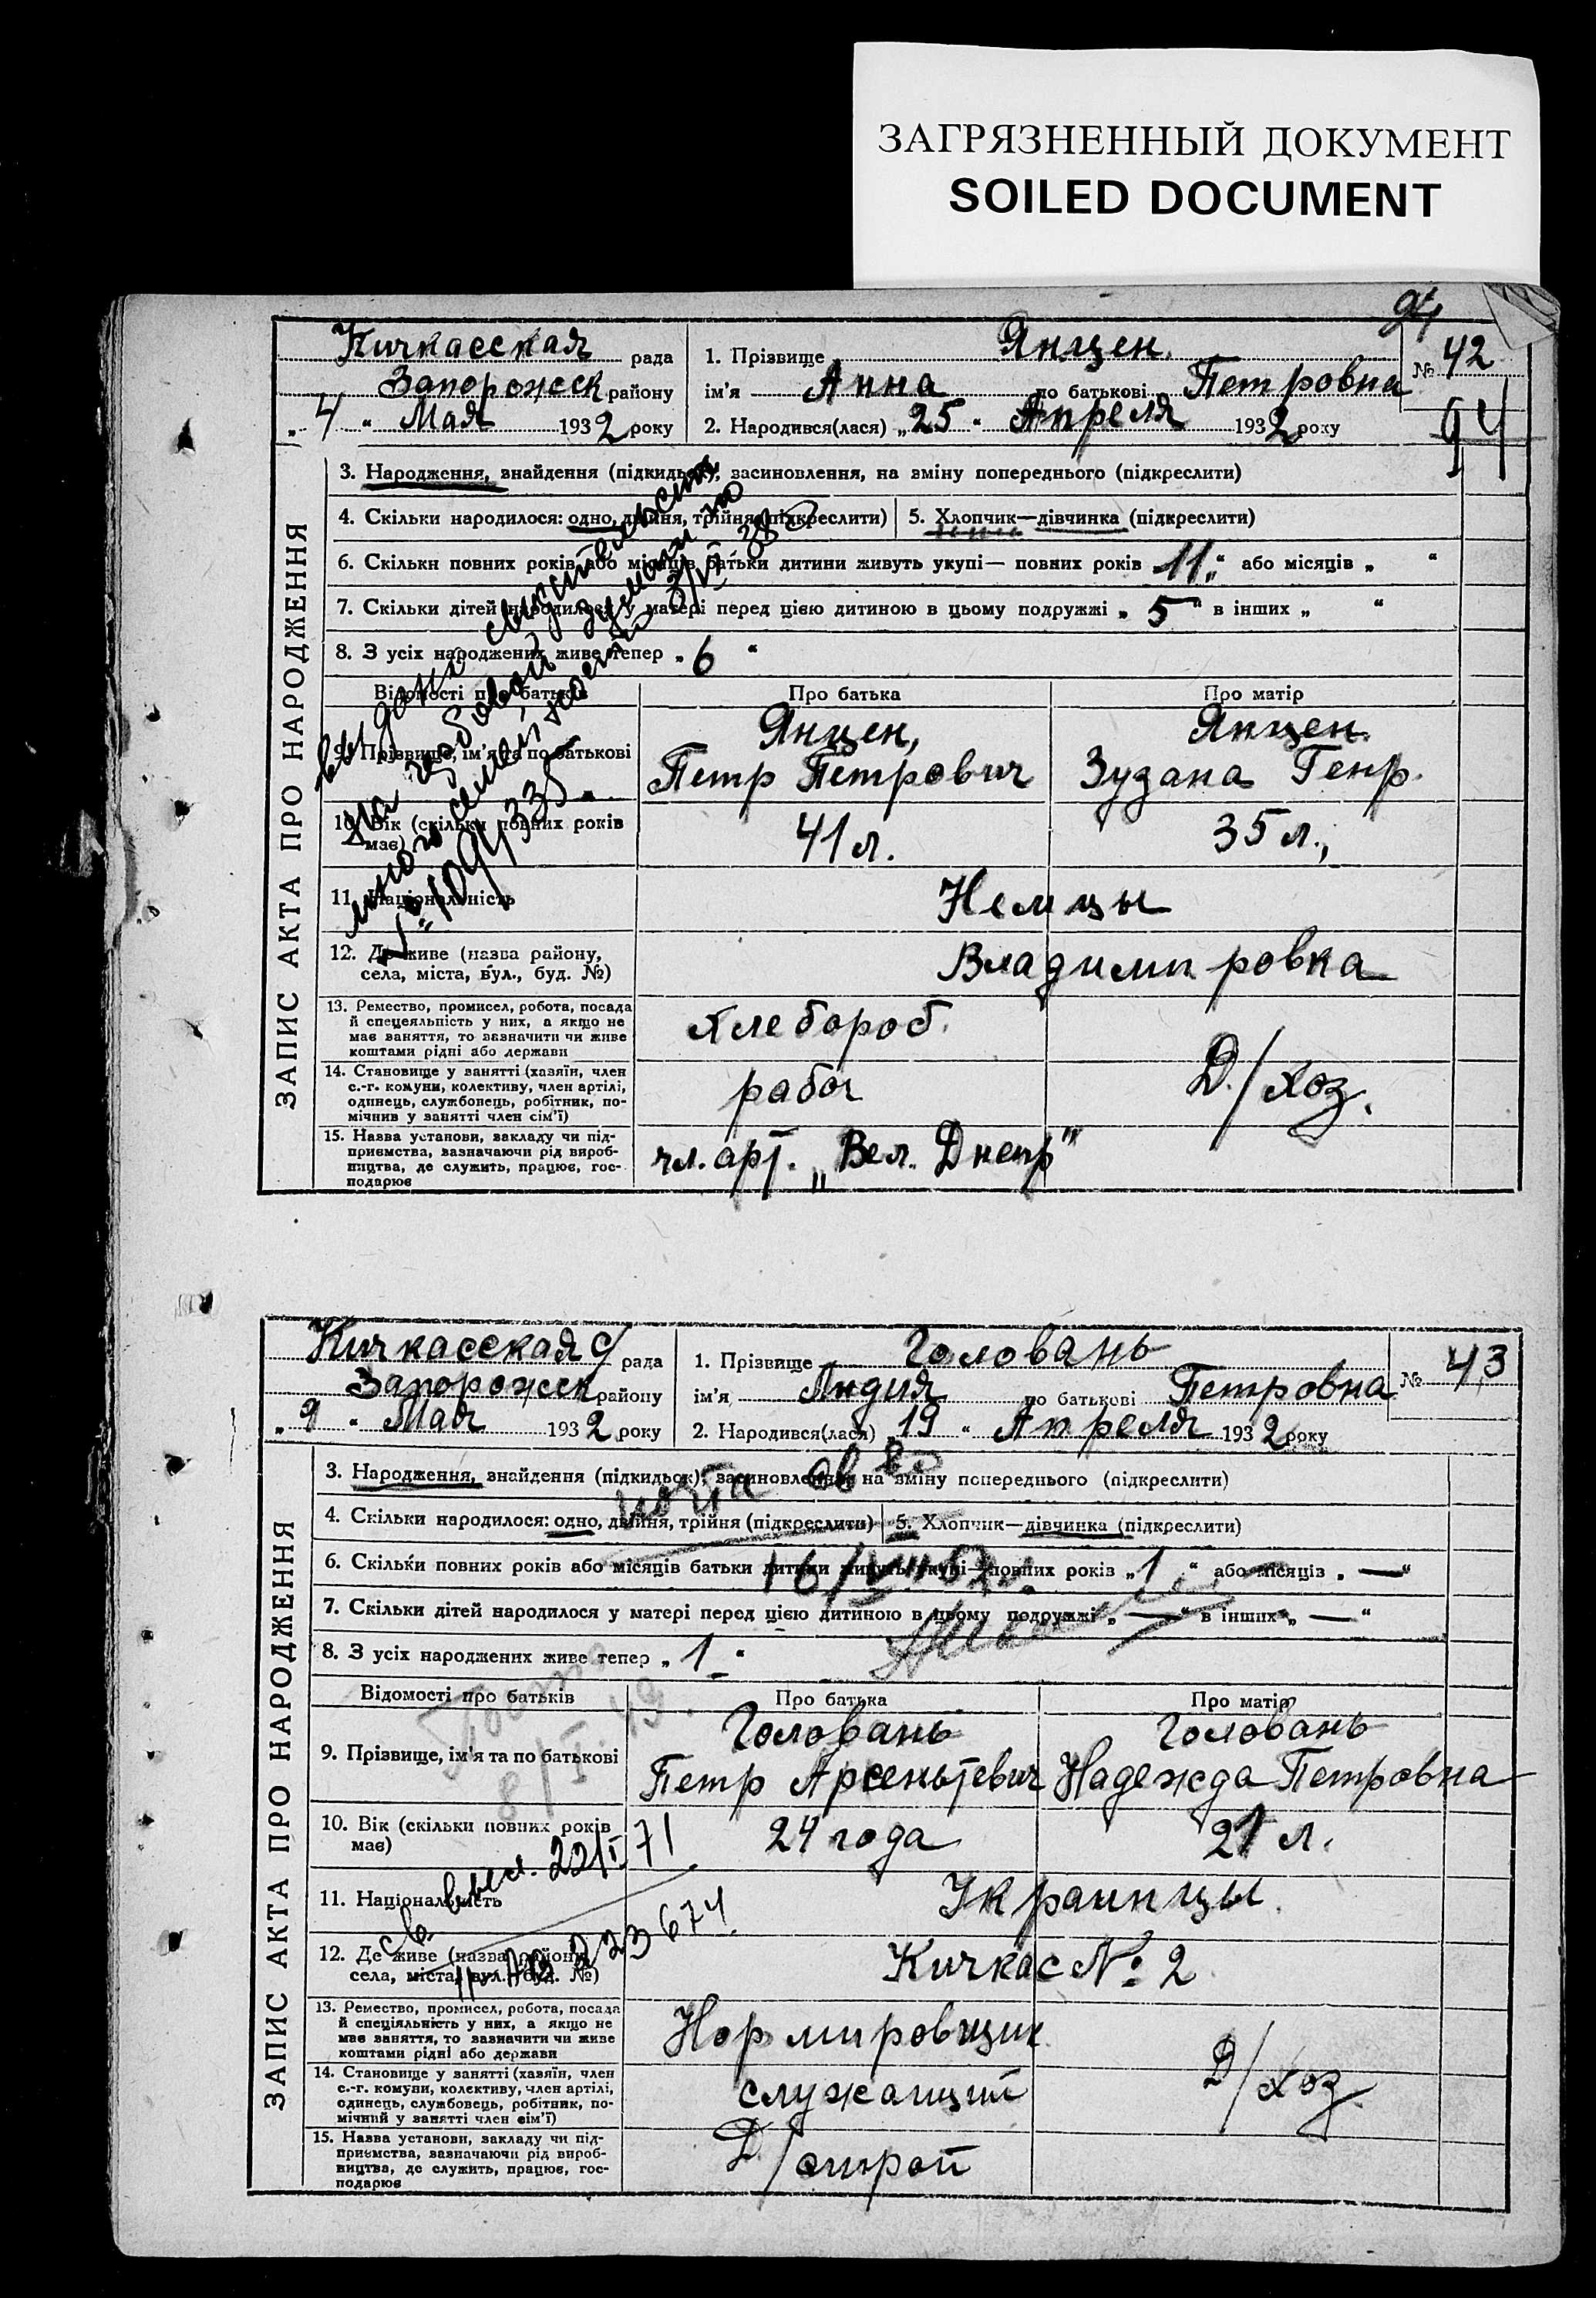 ЗАГРЯЗНЕННЫЙ ДОКУМЕНТ
SOILED DOCUMENT
94
Кичкасская рада
Запорожск району
„4“ Мая 1932 року
1. Прізвище Янцен.
ім'я Анна по батькові Петровна
2. Народився(лася) „25“ Апреля 1932 року
№ 42
94
ЗАПИС АКТА ПРО НАРОДЖЕННЯ
3. Народження, знайдення (підкидьок), засиновлення, на зміну попереднього (підкреслити)
4. Скільки народилося: одно, двійня, трійня (підкреслити)
5. Хлопчик—дівчинка (підкреслити)
6. Скільки повних років або місяців батьки дитини живуть укупі— повних років „11“ або місяців „ “
7. Скільки дітей народилося у матері перед цією дитиною в цьому подружжі „5“ в інших „ “
8. З усіх народжених живе тепер „6“
Відомості про батьків
Про батька
Про матір
9. Прізвище, ім'я та по батькові
Янцен,
Петр Петрович
Янцен.
Зузана Генр.
10. Вік (скільки повних років
має)
41 л.
35 л.,
11. Національність
Немцы
12. Де живе (назва району,
села, міста, вул., буд. №)
Владимировка
13. Ремество, промисел, робота, посада
й спецеяльність у них, а якщо не
має заняття, то зазначити чи живе
коштами рідні або держави
Хлебороб.
14. Становище у занятті (хазяїн, член
с.-г. комуни, колективу, член артілі,
одинець, службовець, робітник, по-
мічник у занятті член сім'ї)
рабоч
Д./хоз.
15. Назва установи, закладу чи під-
приємства, зазначаючи рід вироб-
ництва, де служить, працює, гос-
подарює
чл. арт. „Вел. Днепр"
№ 1094335
Кичкасская с/ рада
Запорожск району
„9“ Мая 1932 року
1. Прізвище Головань
ім'я Лидия по батькові Петровна
2. Народився(лася) „19“ Апреля 1932 року
№ 43
ЗАПИС АКТА ПРО НАРОДЖЕННЯ
3. Народження, знайдення (підкидьок), засиновлення, на зміну попереднього (підкреслити)
4. Скільки народилося: одно, двійня, трійня (підкреслити)
5. Хлопчик—дівчинка (підкреслити)
6. Скільки повних років або місяців батьки дитини живуть укупі—повних років „1“ або місяців „—“
7. Скільки дітей народилося у матері перед цією дитиною в цьому подружжі „—“ в інших „—“
8. З усіх народжених живе тепер „1“
Відомості про батьків
Про батька
Про матір
9. Прізвище, ім'я та по батькові
Головань
Петр Арсентьевич
Головань
Надежда Петровна
10. Вік (скільки повних років
має)
24 года
21 л.
11. Національність
Украинцы.
12. Де живе (назва району,
села, міста, вул., буд. №)
Кичкас № 2
13. Ремество, промисел, робота, посада
й спеціяльність у них, а якщо не
має заняття, то зазначити чи живе
коштами рідні або держави
Нормировщик
14. Становище у занятті (хазяїн, член
с.-г. комуни, колективу, член артілі,
одинець, службовець, робітник, по-
мічний у занятті член сім'ї)
служащий
Д/хоз.
15. Назва установи, закладу чи під-
приємства, зазначаючи рід вироб-
ництва, де служить, працює, гос-
подарює
Д/строй